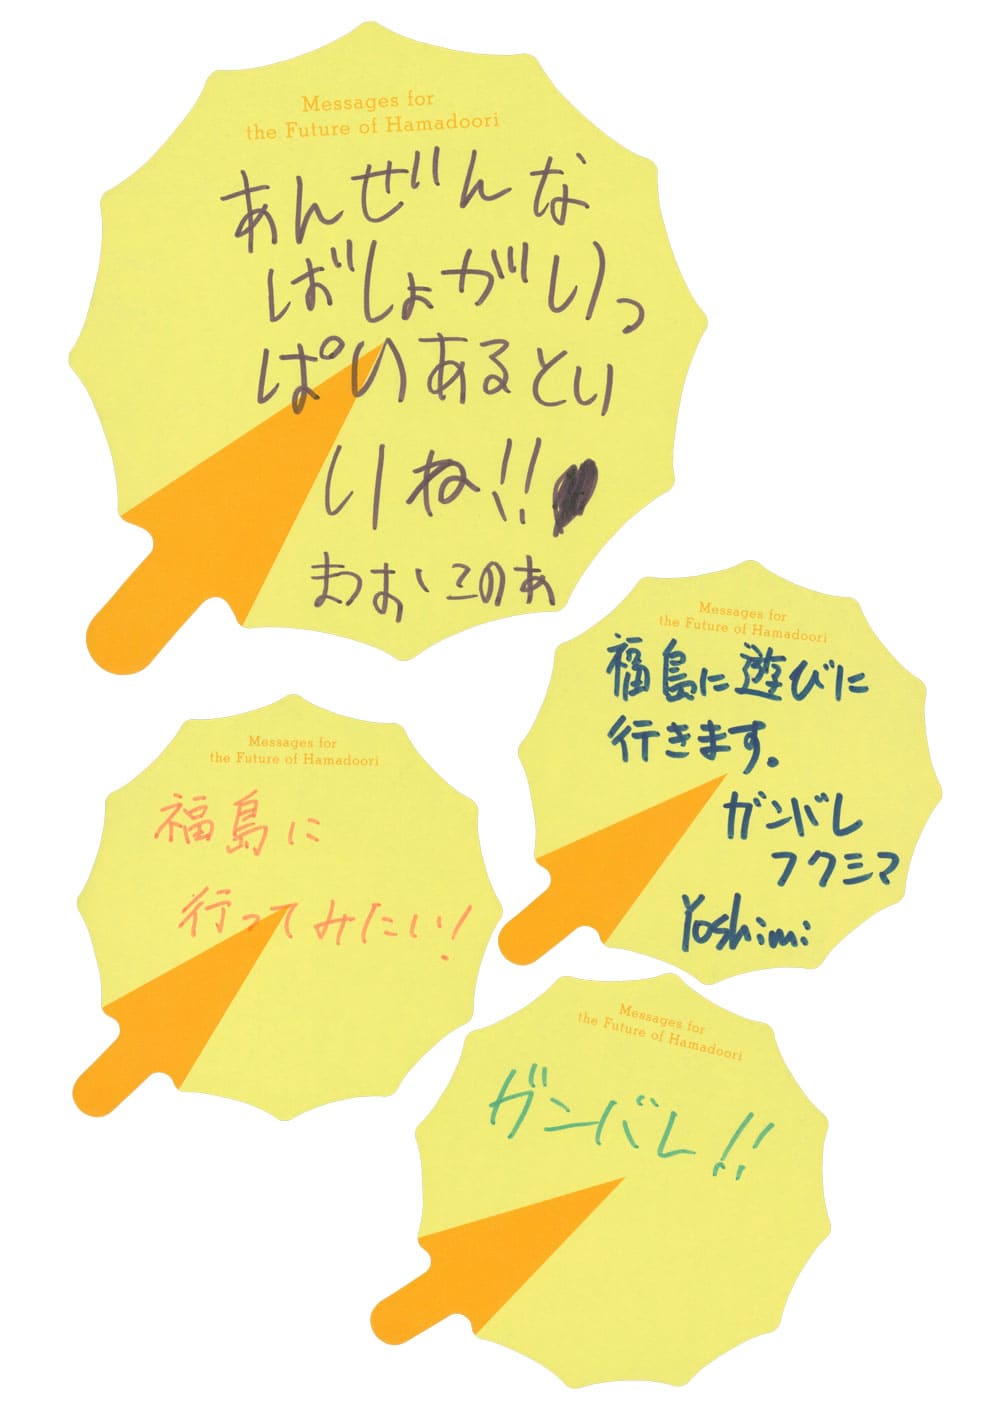 Messages for
the Future of Hamadoori
あんぜんな
ばしょがいっ
ぱいあるとい
いね!!
Messages for
the Future of Hamadoori
福島に遊びに
行きます。
ガンバレ
フクシマ
Yoshimi
Messages for
the Future of Hamadoori
福島に
行ってみたい!
Messages for
the Future of Hamadoori
ガンバレ!!